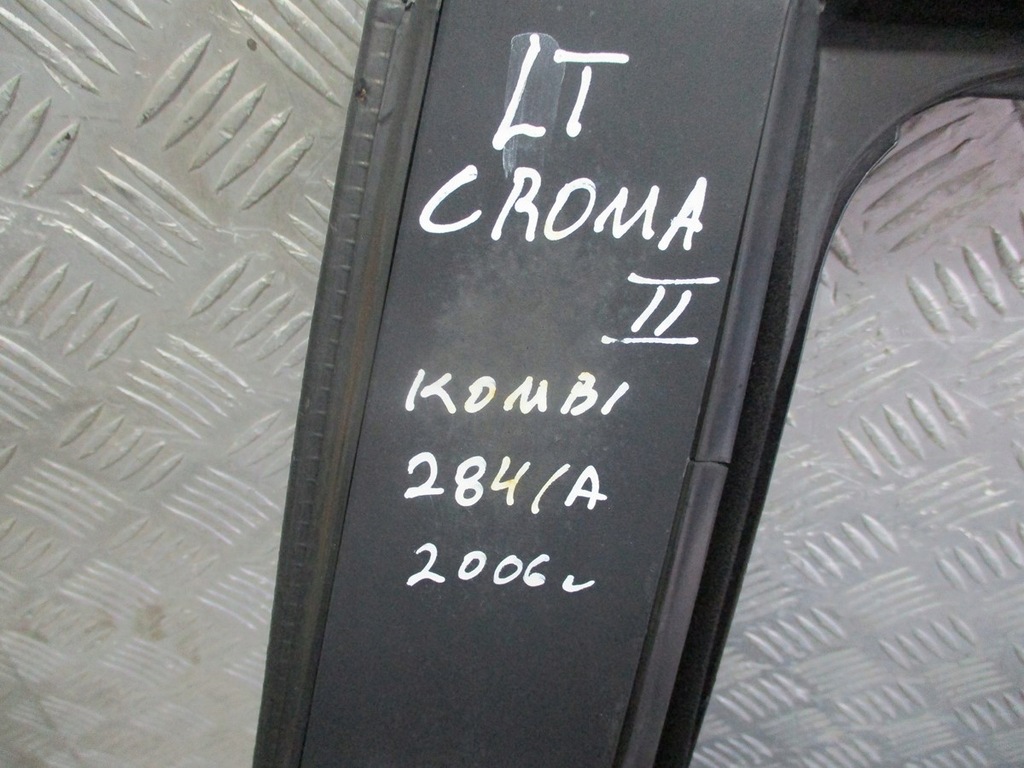 LT
CROMA
II
KOMBI
284/A
2006r